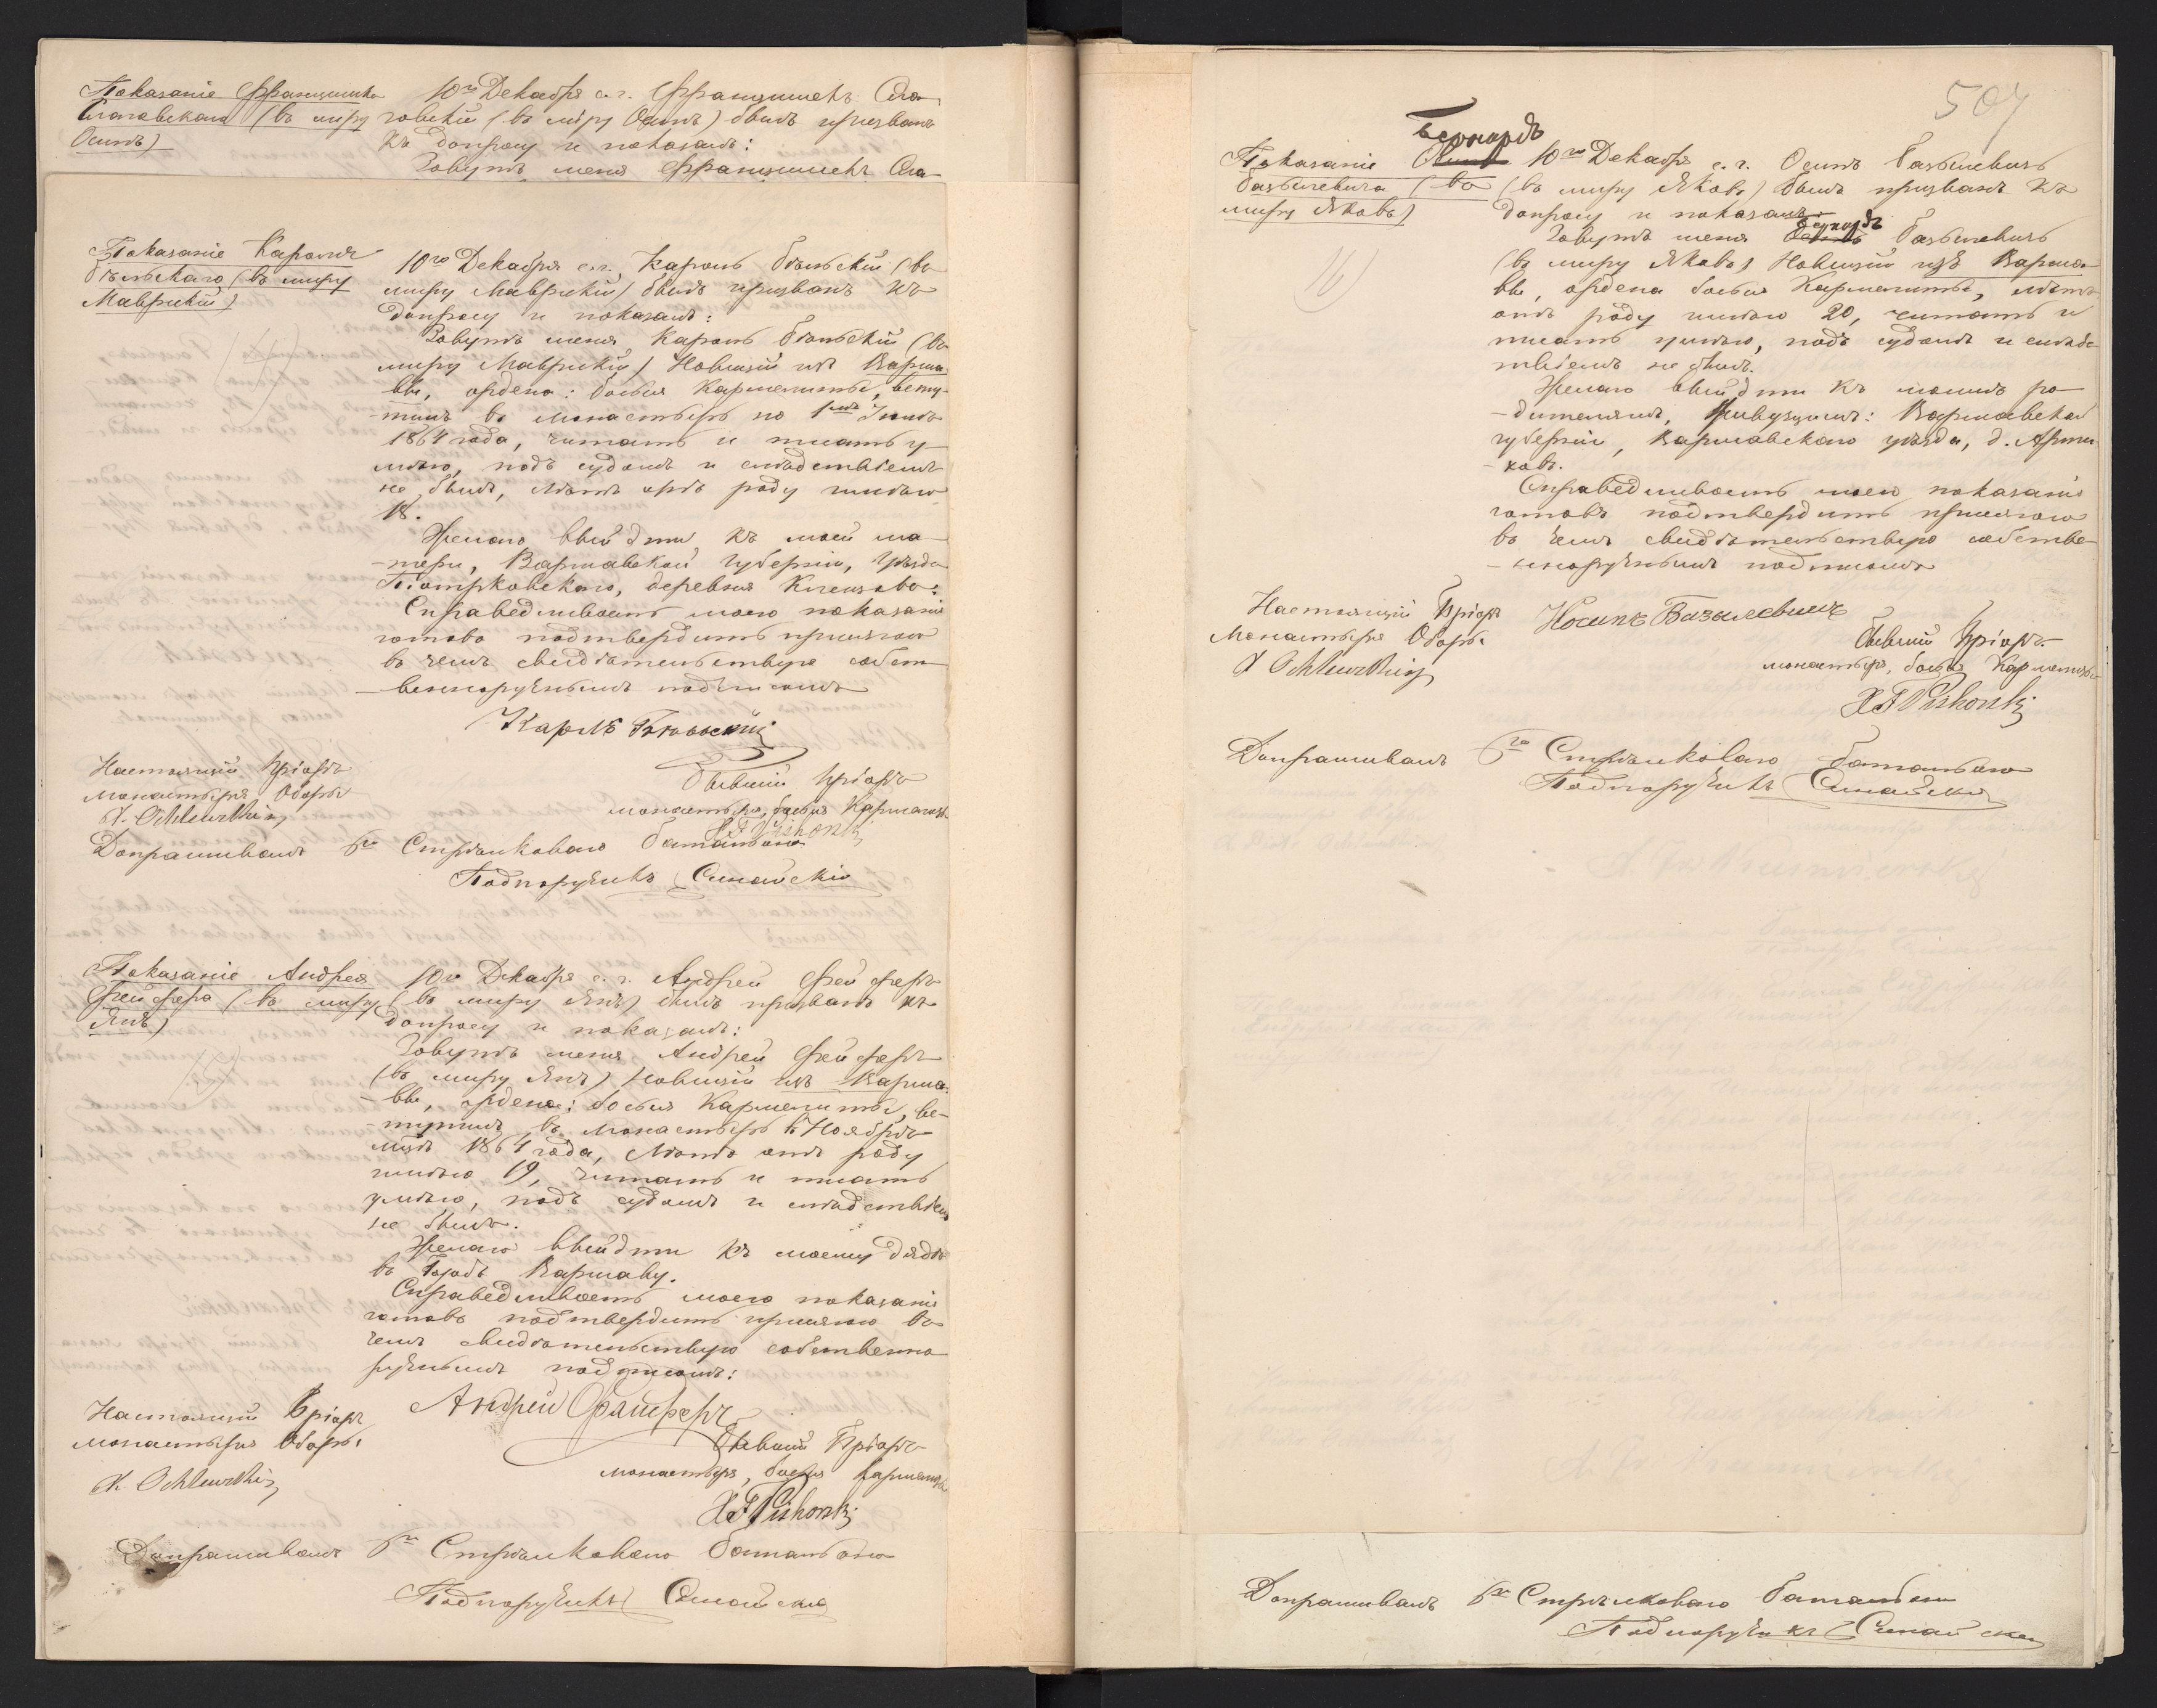 Показаніе Францишка
Слаговскаго (въ міру
Осипъ)
10го Декабря с. г. Францишекъ Сла-
говскій (въ міру Осипъ) былъ призванъ
къ допросу и показалъ:
Зовутъ меня Францишекъ Сла-
Показаніе Кароля
Бѣльскаго (въ миру
Маврикій)
10го Декабря с. г., Кароль Бѣльскій (въ
миру Маврикій) былъ призванъ къ
допросу и показалъ:
Зовутъ меня Кароль Бѣльскій (въ
миру Маврикій) Новицій изъ Варша-
вы, ордена: босыя Кармелиты, всту-
-пилъ въ монастырь по 1ый Іюнь
1864 года, читать и писать у-
мѣю, подъ судомъ и слѣдствіемъ
не былъ, лѣтъ отъ роду имѣю
18.
Желаю выйдти къ моей ма-
-тери, Варшавской губерніи, Уѣзда
Піотрковскаго, деревня
Справедливость моего показанія
готовъ подтвердить присягою
въ чемъ свидѣтельствую собст-
-венноручнымъ подписомъ
Кароль Бѣльскій
Настоящій Пріоръ
Монастыря Оборы
Бывшій Пріоръ
монастыря, босыя Кармелит.
Допрашивалъ 6го Стрѣлковаго баталіона
Подпоручикъ Синайскій
Показаніе Андрея
Фейфера (въ миру
Янъ)
10го Декабря с. г. Андрей Фейферъ
(въ миру Янъ) былъ призванъ къ
допросу и показалъ:
Зовутъ меня Андрей Фейферъ
(въ миру Янъ) Новицій изъ Варша-
-вы, ордена: босыя Кармелиты, вс-
-тупилъ въ монастырь въ Ноябрѣ
мцѣ 1864 года, Лѣтъ отъ роду
имѣю 19, читать и писать
умѣю, подъ судомъ и слѣдствіемъ
не былъ.
Желаю выйдти къ моему дядѣ
въ Городъ Варшаву.
Справедливость моего показанія
готовъ подтвердить присягою въ
чемъ свидѣтельствую собственно
ручнымъ подписомъ:
Андрей Файферъ
Настоящій Пріоръ
монастыря Оборы
Бывшій Пріоръ
монастыря, босыя Кармелиты
Допрашивалъ 6го Стрѣлковаго баталіона
Подпоручикъ Синайскій
507
Бернардъ
Показаніе Осипа
Базылевича (въ
миру Яковъ)
16)
10го Декабря с. г. Осипъ Базылевичъ
(въ миру Яковъ) былъ призванъ къ
допросу и показалъ:
Бернардъ
Зовутъ меня Осипъ Базылевичъ
(въ миру Яковъ) Новицій изъ Варша-
вы, ордена босыя Кармелиты, лѣтъ
отъ роду имѣю 20, читать и
писать умѣю, подъ судомъ и слѣдс-
твіемъ не былъ.
Желаю выйдти къ моимъ ро-
-дителямъ, живущимъ: Варшавской
губерніи, Варшавскаго уѣзда, д.
Справедливость моего показанія
готовъ подтвердить присягою
въ чемъ свидѣтельствую собстве-
-нноручнымъ подписомъ
Настоящій Пріоръ
Монастыря Оборы
Іосипъ Базылевичъ
Бывшій Пріоръ
монастыр, босыя Кармелиты
Допрашивалъ 6го Стрѣлковаго баталіона
Подпоручикъ Синайскій
Допрашивалъ 6го Стрѣлковаго баталіона
Подпоручикъ Синайскій